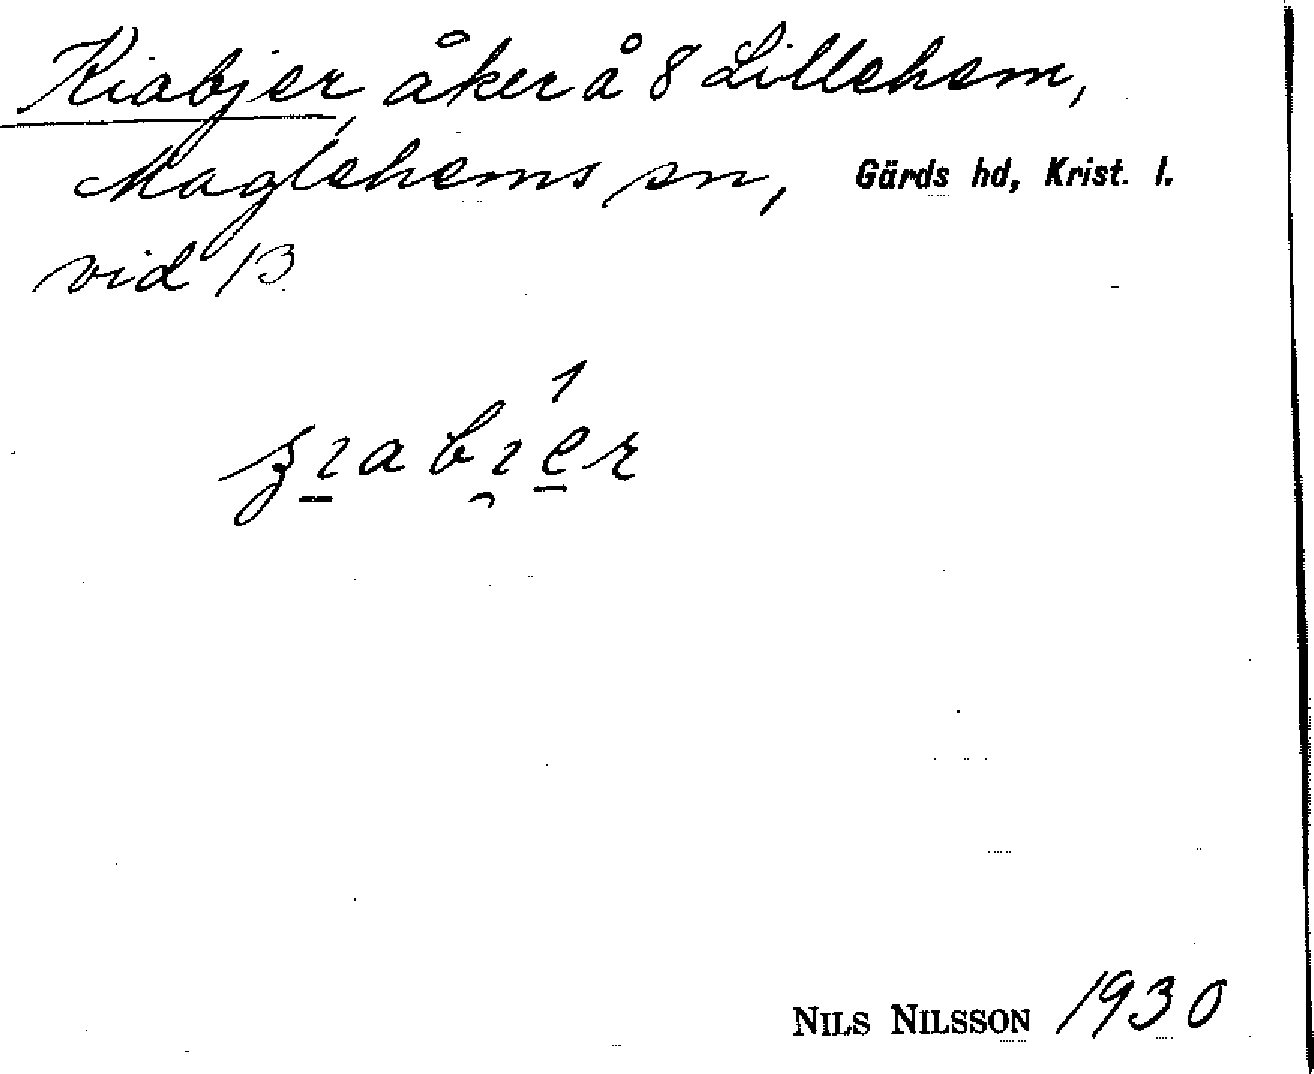 Kiabjer, åker å 8 Lillehem,
Maglehems sn, Gärds hd, Krist. l.
vid 13
NILS NILSSON 1930